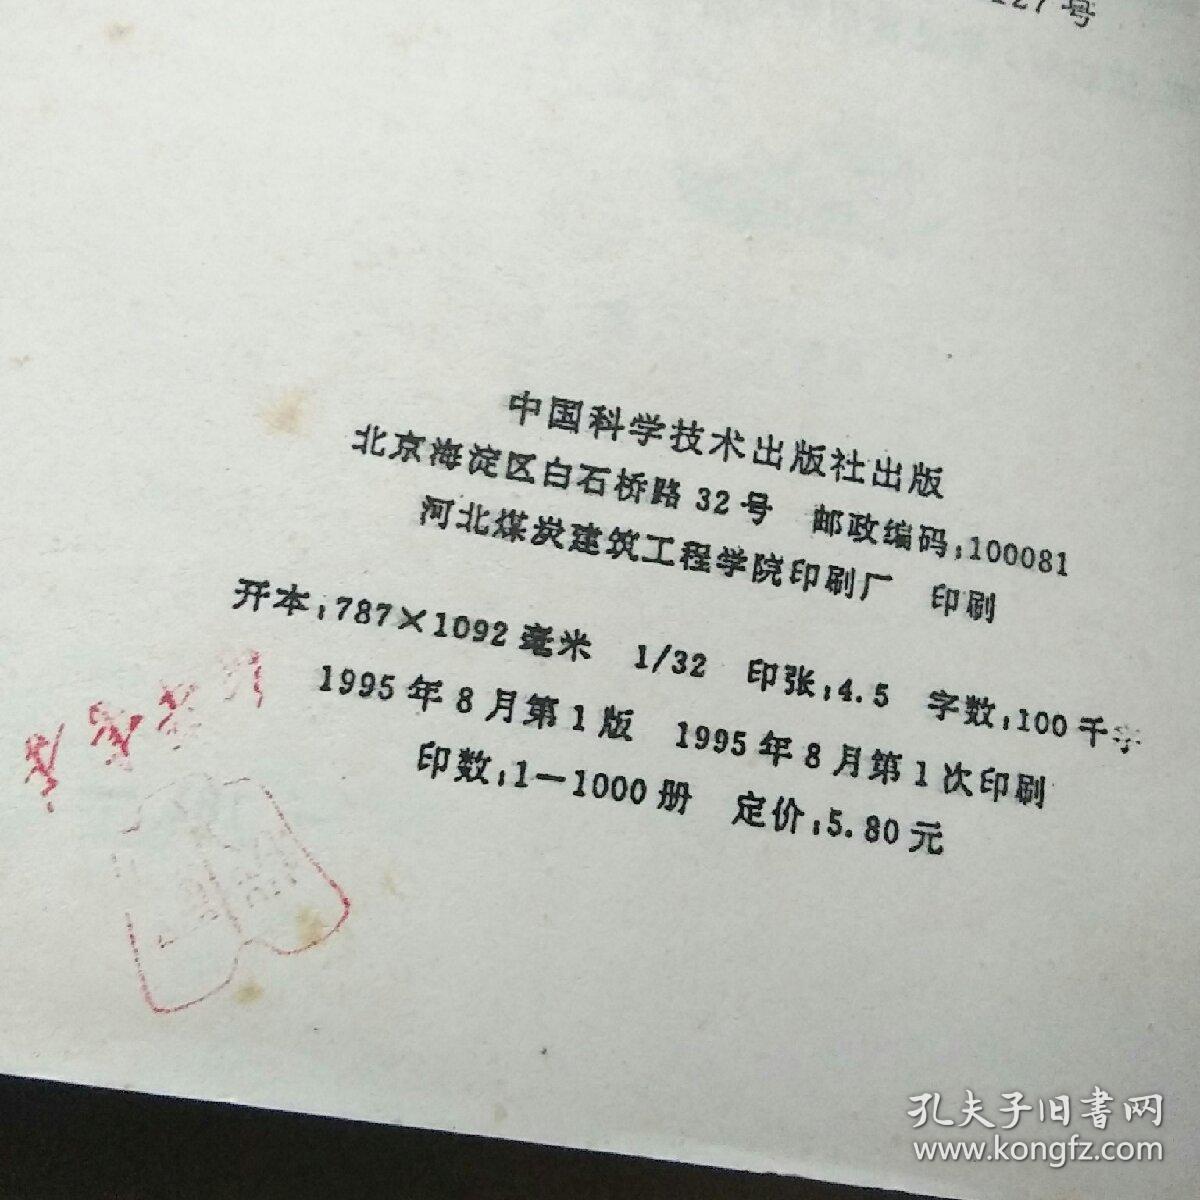 127号
中国科学技术出版社出版
北京海淀区白石桥路32号 邮政编码:100081
河北煤炭建筑工程学院印刷厂 印刷
开本:787×1092毫米 1/32 印张:4.5 字数:100千字
1995年8月第1版 1995年8月第1次印刷
印数:1—1000册 定价:5.80元
孔夫子旧書网
www.kongfz.com